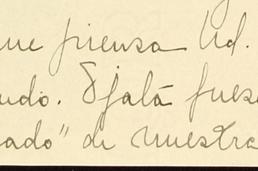 que piensa Ud.
udo. Ojalá fuese
ado" de nuestra